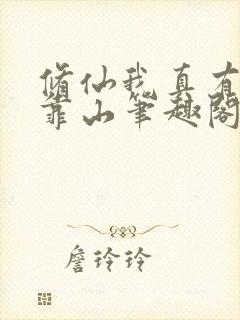 修仙我真有
靠山笔趣阁
詹玲玲